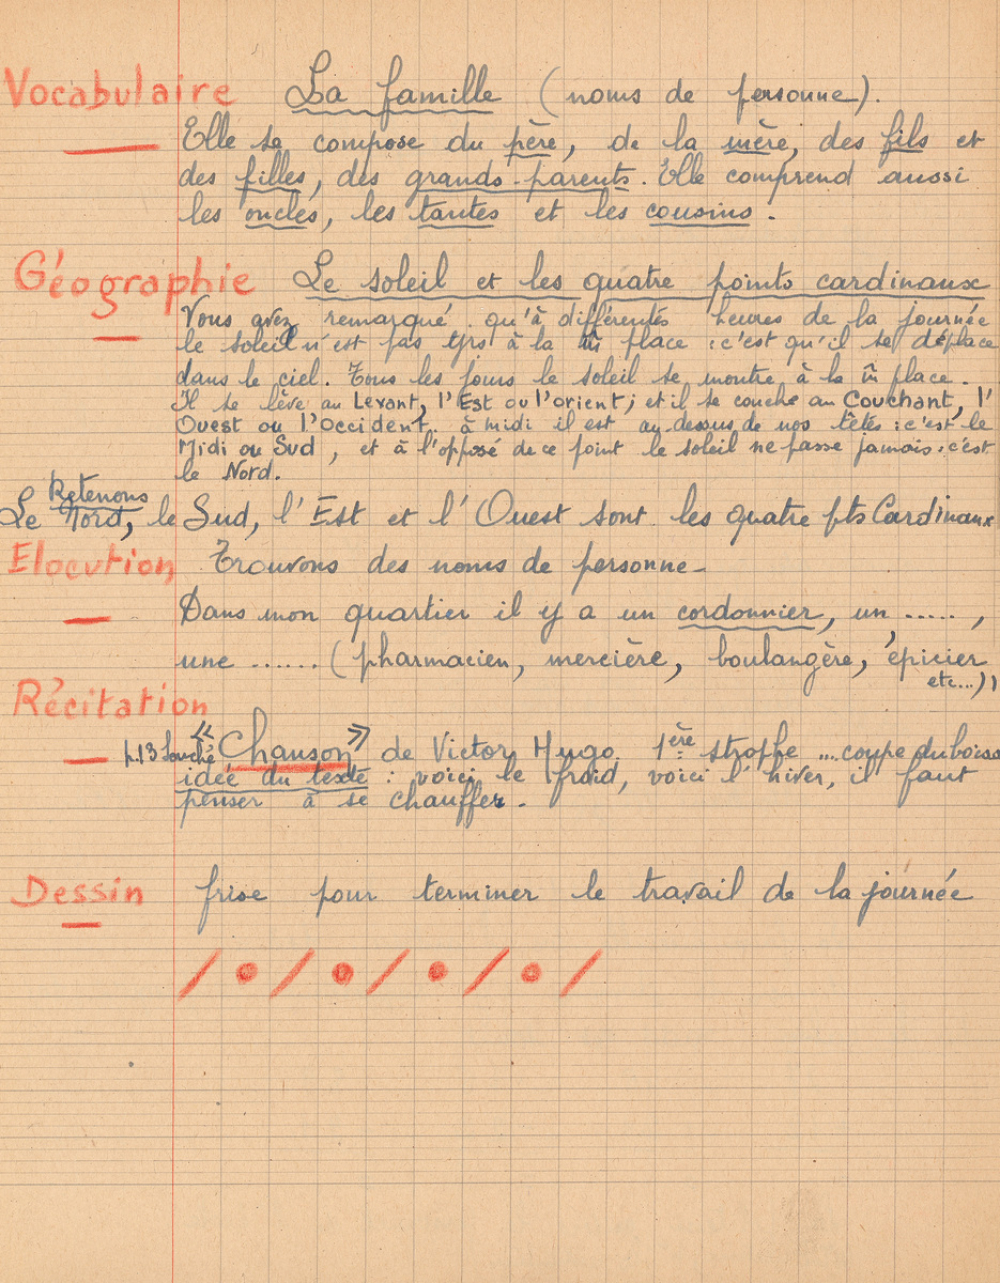 Vocabulaire La famille (noms de personne).
Elle se compose du père, de la mère, des fils et
des filles, des grands-parents. Elle comprend aussi
les oncles, les tantes et les cousins.
Géographie Le soleil et les quatre points cardinaux
Vous avez remarqué qu'à différentes heures de la journée
le soleil n'est pas tjrs à la m̂ place : c'est qu'il se déplace
dans le ciel. Tous les jours le soleil se montre à la m̂ place.
Il se lève au Levant, l'Est ou l'orient ; et il se couche au Couchant, l'
Ouest ou l'occident. à midi il est au-dessus de nos têtes : c'est le
Midi ou Sud, et à l'opposé de ce point le soleil ne passe jamais : c'est
le Nord.
Retenons
Le Nord, le Sud, l'Est et l'Ouest sont les quatre pts Cardinaux
Elocution Trouvons des noms de personne-
Dans mon quartier il y a un cordonnier, un ....., 
une ...... (pharmacien, mercière, boulangère, épicier
etc...))
Récitation
p.13 Souché "Chanson" de Victor Hugo. 1ère strophe ....coupe du bois
idée du texte : voici le froid, voici l'hiver, il faut
penser à se chauffer.
Dessin frise pour terminer le travail de la journée